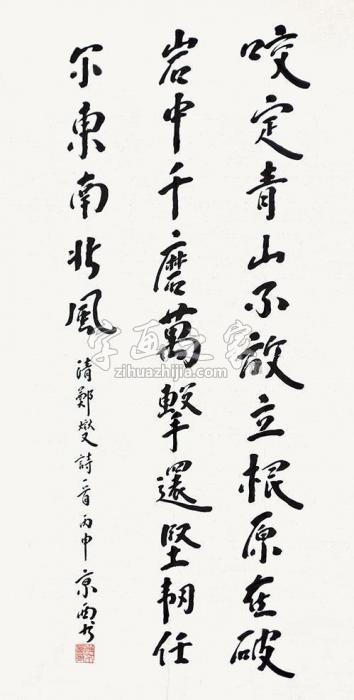 咬定青山不放立根原在破
岩中千磨萬擊還堅韌任
尔東南北風
清鄭燮詩一首丙申京
字画之家
zihuazhijia.com